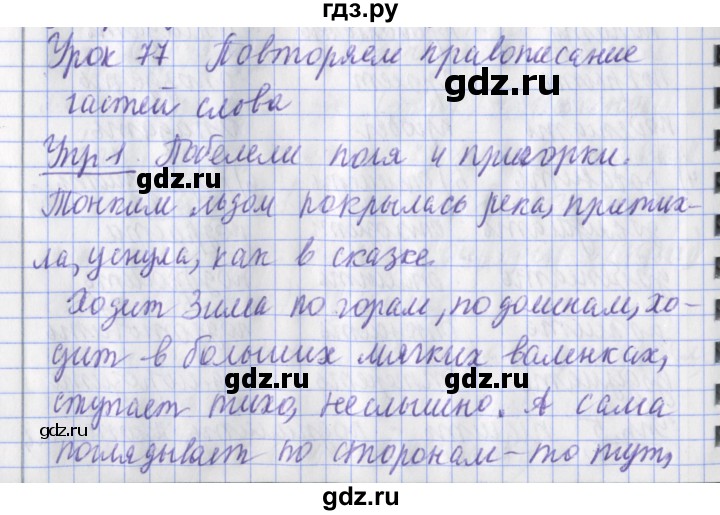 гдз.ру
Урок 77 Повторяем правописание
gdz.ru
частей слова
Упр 1. Побелели поля и пригорки.
gdz.ru
Тонким льдом покрылась река, притих-
ла, уснула, как в сказке.
Ходит Зима по горам, по долинам, хо-
дит в больших мягких валенках,
gdz.ru gdz.ru
ступает тихо, неслышно. А сама
gdz.ru
поглядывает по сторонам - то тут,
gdz.ru